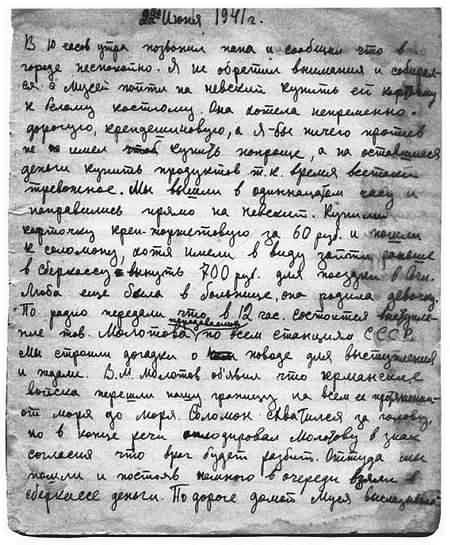 22го Июня 1941 г.
В 10 часов утра позвонил папа и сообщил что в
городе неспокойно. Я не обратил внимания и собирал-
ся с Мусей пойти на невский купить ей кофточку
к белому костюму. Она хотела непременно
дорогую, крепдешиновую, а я-бы ничего против
не имел купить попроще, а на оставшиеся
деньги купить продуктов т.к. время всетаки
тревожное. Мы вышли в одиннадцатом часу и
направились прямо на невский. Купили
кофточку креп-жоржетовую за 60 руб. и пошли
к соломону, хотя имели в виду зайти раньше
в сберкассу вынуть 700 руб. для поездки в
Люба еще была в больнице, она родила девочку.
По радио передали что в 12 час. состоится выступле-
ние тов. Молотова по всем станциям СССР.
Мы строили догадки о поводе для выступления
и ждали. В.М. Молотов объявил что германские
войска перешли нашу границу на всем ее протяжении
от моря до моря. Соломон схватился за голову,
но в конце речи аплодировал Молотову в знак
согласия что враг будет разбит. Оттуда мы
пошли и постояв немного в очереди взяли в
сберкассе деньги. По дороге домой Муся